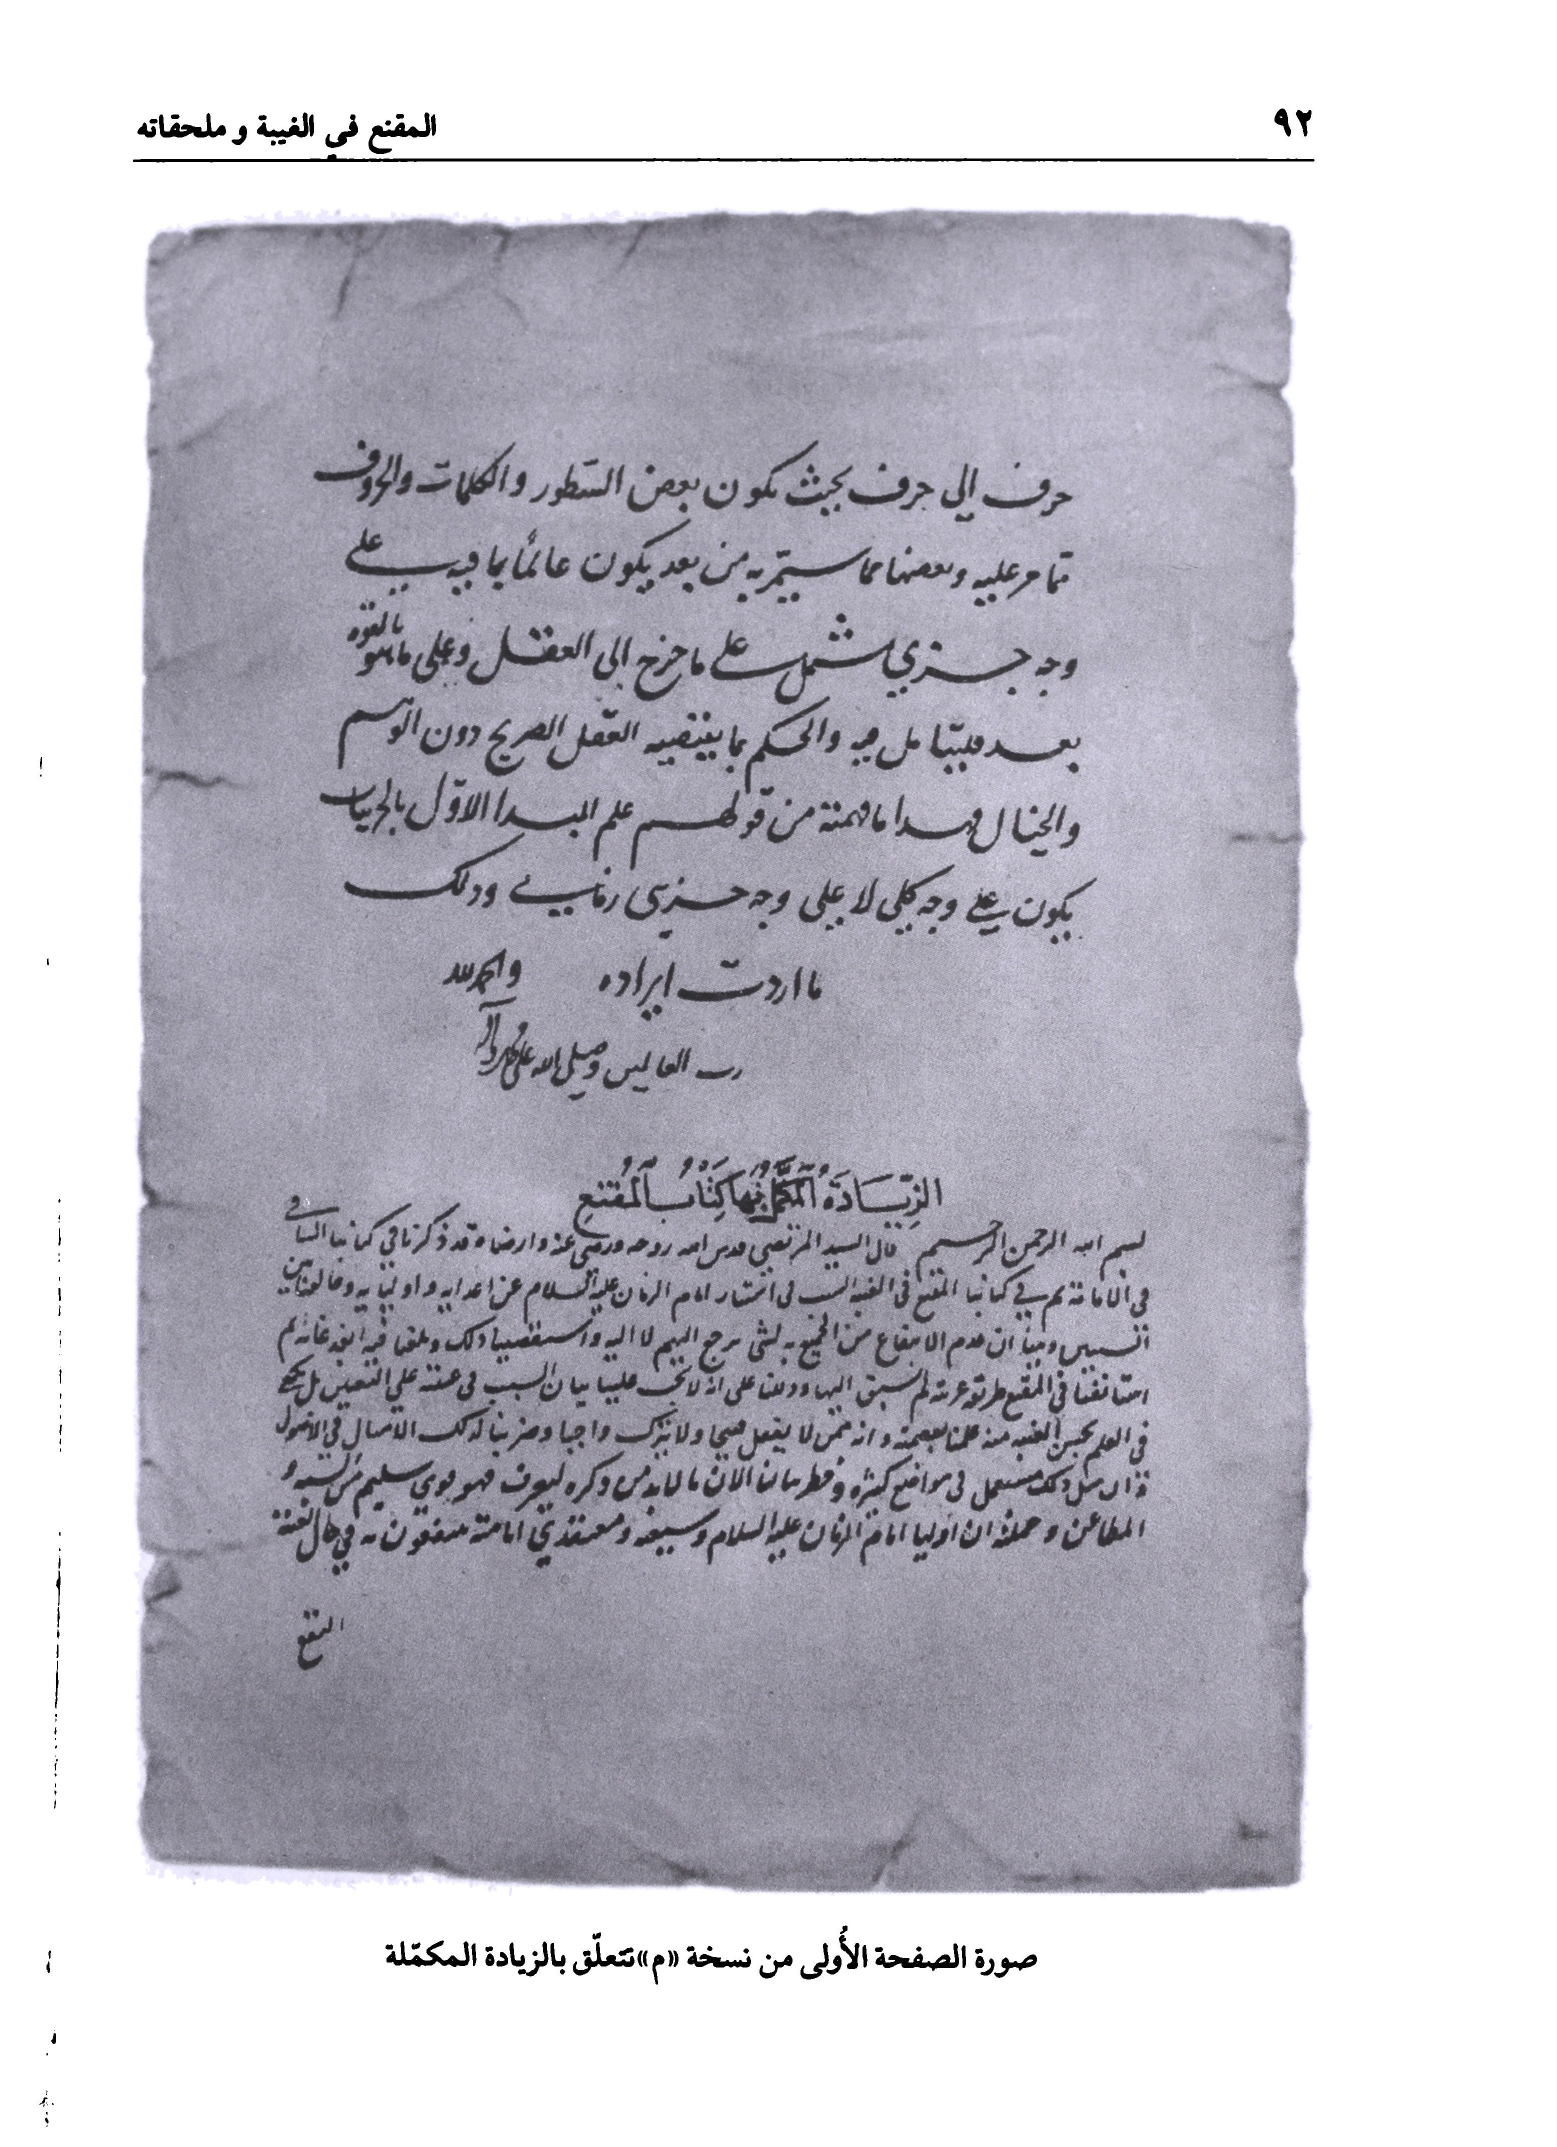 ٩٢
المقنع في الغيبة و ملحقاته
حرف إلى حرف بحيث يكون بعض السّطور والكلمات والحروف
ممّا مر عليه وبعضها مما سيمرّ به من بعد يكون عالمًا بما فيه على
وجه جزي يشتمل على ما خرج الى العقل وعلى ما هو بالقوه
بعد فليتامل فيه والحكم بما يقتضيه العقل الصريح دون الوهم
والخيال فهدا ما فهمته من قولهم علم المبدا الاوّل بالجزييات
يكون على وجه كلي لا على وجه جزيي زماني ودلك
ما اردت ايراده والحمد لله
رب العالمين وصلى الله على محمد وآله
الزِّيَادَةُ المُكَمَّلُ بِهَا كِتَابُ المُقْنِعِ
بسم الله الرحمن الرحيم قال السيد المرتضى قدس الله روحه ورضى عنه وارضاه قد ذكرنا في كتابنا الشافي
في الامامة ثم في كتابنا المقنع في الغيبة السبب في استتار امام الزمان عليه السلام عن اعدايه واوليايه
السببين وبينا ان عدم الانتفاع من الجميع به لشي يرجع اليهم لا اليه واستقصينا دلك وبلغنا فيه ابعد غاية ثم
استانفنا في المقنع طريقة غريبة لم نسبق اليها ودللنا على انه لا يجب علينا بيان السبب في غيبته على التعيين بل يكفي
في العلم بحسن الغيبة منه علمنا بعصمته وانه ممن لا يفعل قبيحا ولا يترك واجبا وضربنا لدلك الامثال في الاصول
وان مثل دلك مستعمل في مواضع كثيرة وخطر ببالنا الان ما لا بد من دكره ليعرف فهو قوي سليم من الشبه و
المطاعن وجملته ان اوليا امام الزمان عليه السلام وشيعته ومعتقدي امامته ينتفعون به في حال الغيبة
النفع
صورة الصفحة الأُولى من نسخة «م» تتعلّق بالزيادة المكمّلة